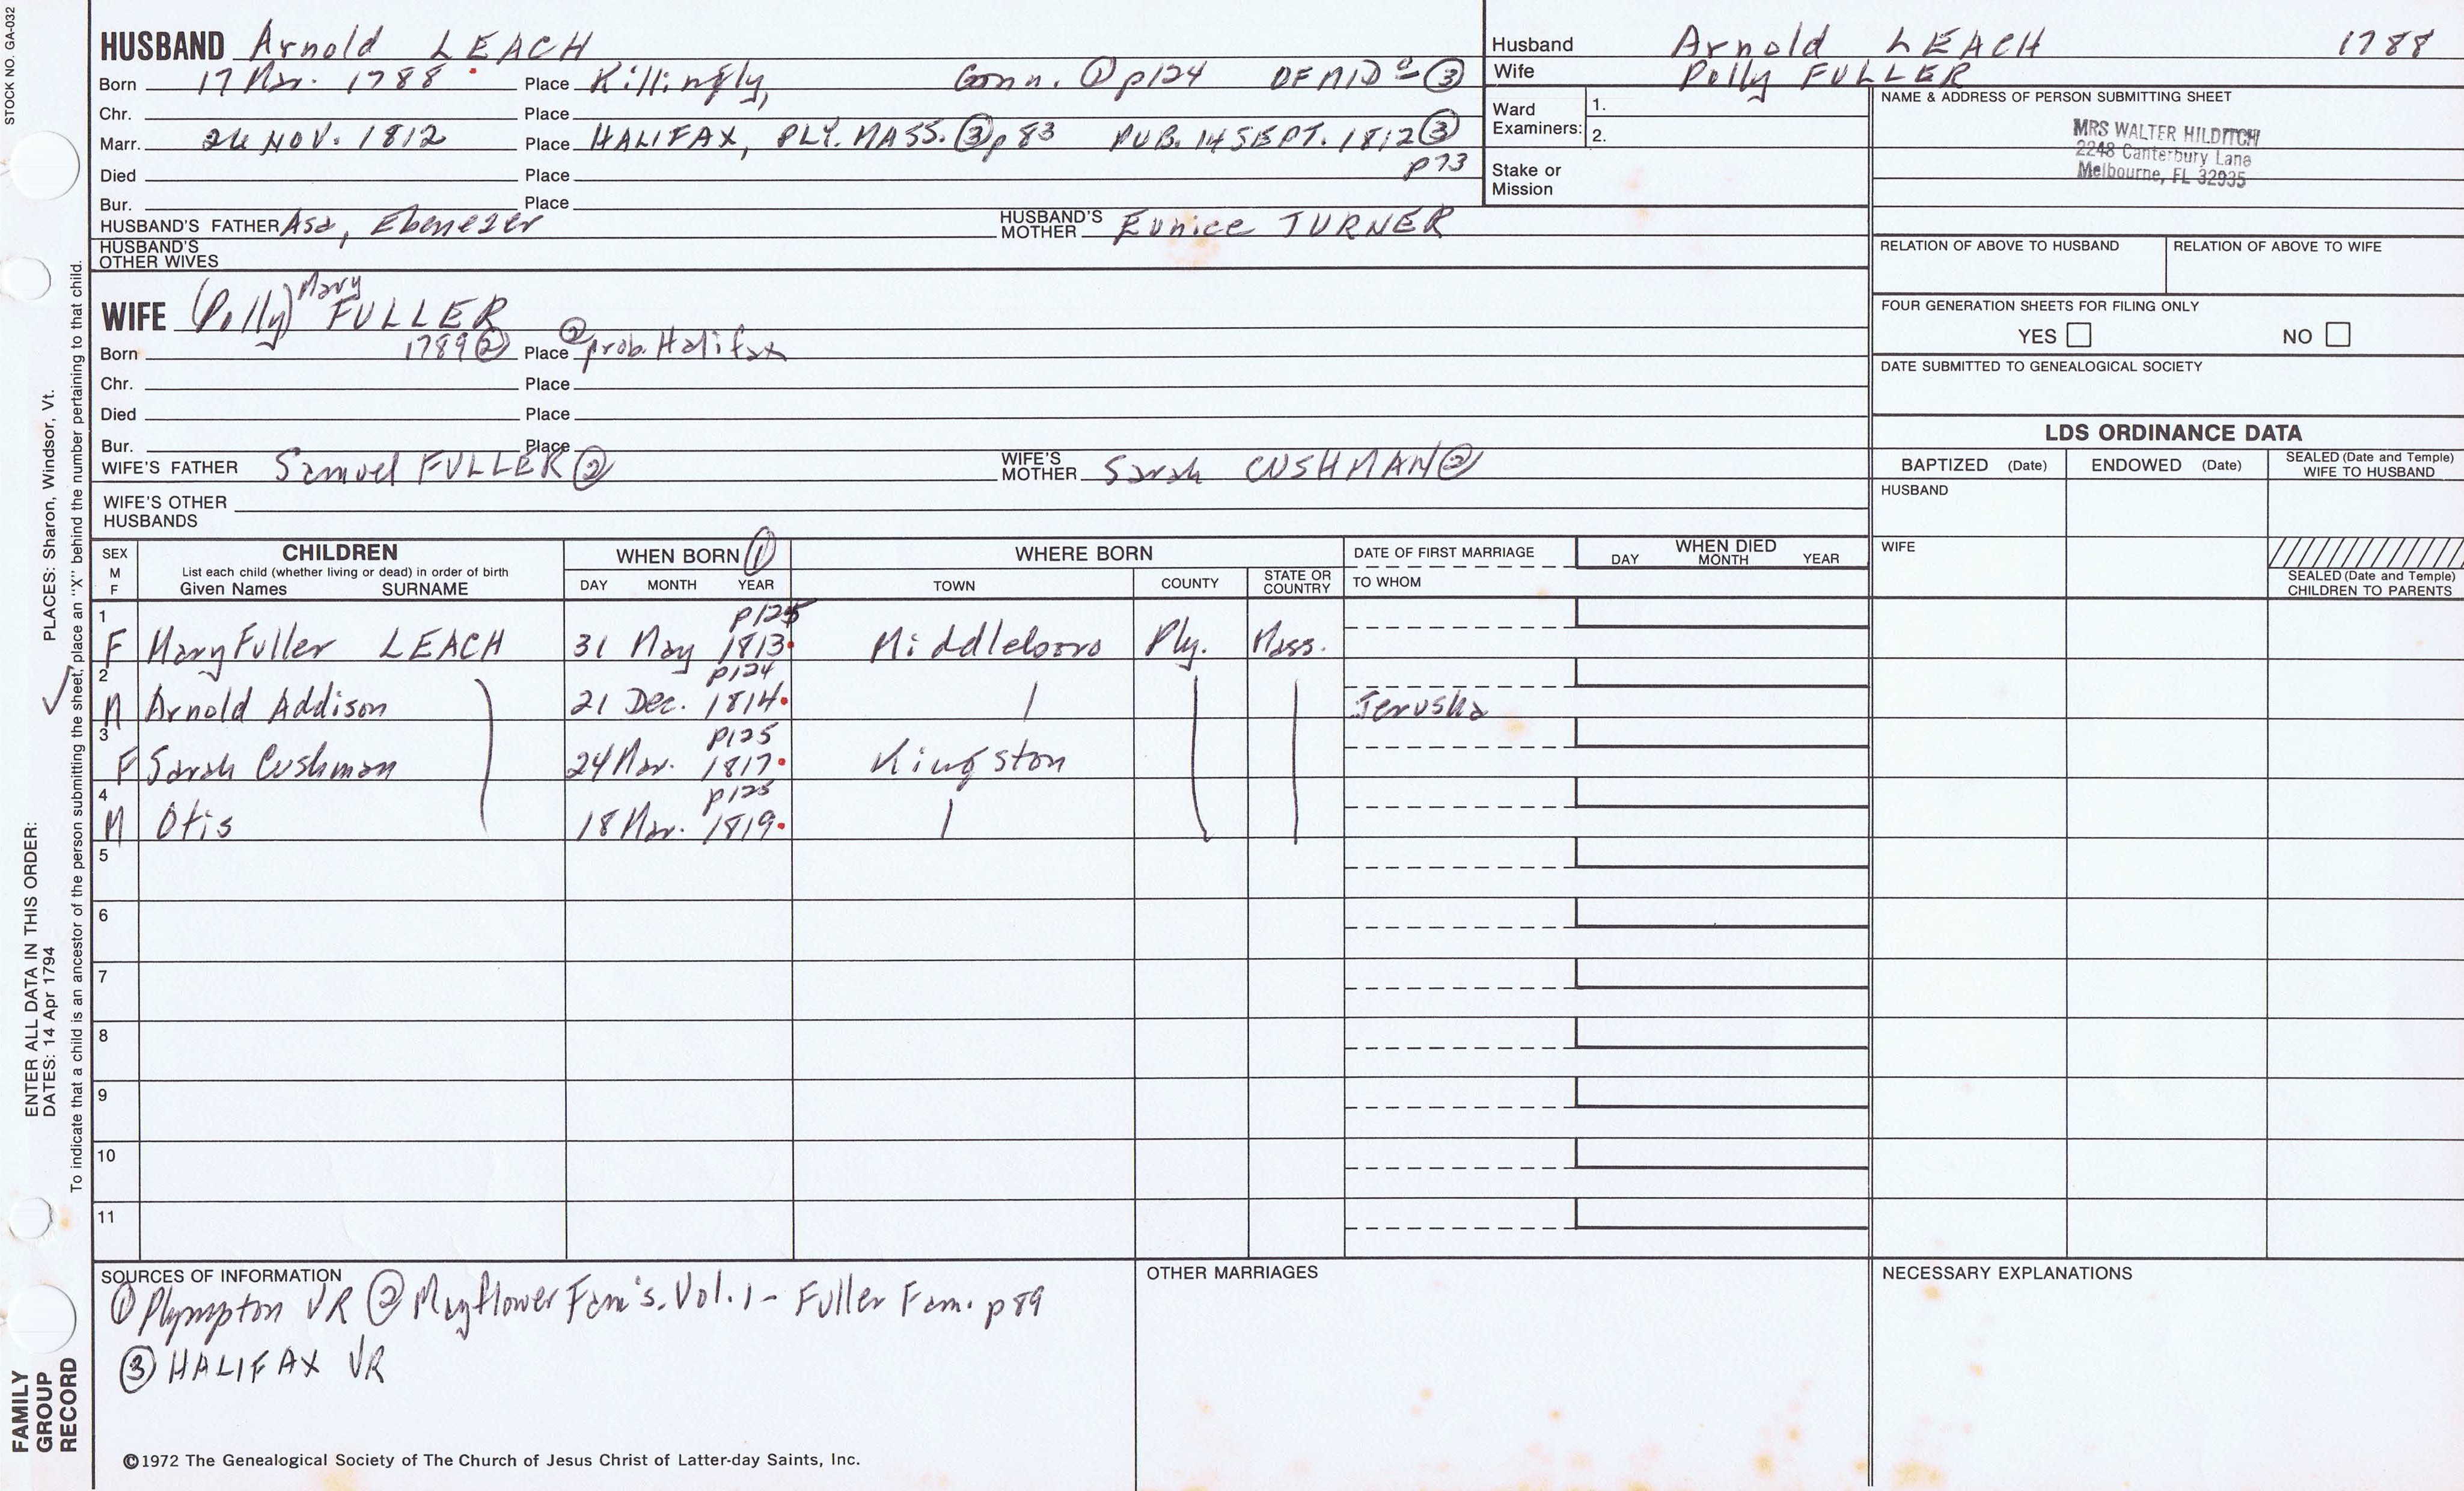 STOCK NO. GA-032
HUSBAND Arnold LEACH
Born 17 Mar. 1788 Place Killingly, Conn. ① p124 OF MID⁰ ③
Chr. Place
Marr. 24 NOV. 1812 Place HALIFAX, PLY. MASS. ③ p83 PUB. 14 SEPT. 1812 ③
p73
Died Place
Bur. Place
HUSBAND'S FATHER Asa, Ebenezer HUSBAND'S MOTHER Eunice TURNER
HUSBAND'S OTHER WIVES
Mary
WIFE (Polly) FULLER
Born 1789 ② Place ② prob. Halifax
Chr. Place
Died Place
Bur. Place
WIFE'S FATHER Samuel FULLER ② WIFE'S MOTHER Sarah CUSHMAN ②
WIFE'S OTHER HUSBANDS
Husband Arnold LEACH 1788
Wife Polly FULLER
Ward Examiners: 1.
2.
Stake or Mission
NAME & ADDRESS OF PERSON SUBMITTING SHEET
MRS WALTER HILDITCH
2248 Canterbury Lane
Melbourne, FL 32935
RELATION OF ABOVE TO HUSBAND RELATION OF ABOVE TO WIFE
FOUR GENERATION SHEETS FOR FILING ONLY
YES NO
DATE SUBMITTED TO GENEALOGICAL SOCIETY
LDS ORDINANCE DATA
BAPTIZED (Date) ENDOWED (Date) SEALED (Date and Temple) WIFE TO HUSBAND
HUSBAND
WIFE
SEALED (Date and Temple) CHILDREN TO PARENTS
SEX M F CHILDREN WHEN BORN ① WHERE BORN DATE OF FIRST MARRIAGE WHEN DIED
List each child (whether living or dead) in order of birth
Given Names SURNAME DAY MONTH YEAR TOWN COUNTY STATE OR COUNTRY TO WHOM DAY MONTH YEAR
1 p125
F Mary Fuller LEACH 31 May 1813 Middleboro Ply. Mass.
2 p124
M Arnold Addison 21 Dec. 1814 Jerusha
3 p125
F Sarah Cushman 24 Mar. 1817 Kingston
4 p125
M Otis 18 Mar. 1819
5
6
7
8
9
10
11
SOURCES OF INFORMATION
① Plympton VR ② Mayflower Fam's. Vol. 1 - Fuller Fam. p 89
③ HALIFAX VR
OTHER MARRIAGES
NECESSARY EXPLANATIONS
©1972 The Genealogical Society of The Church of Jesus Christ of Latter-day Saints, Inc.
FAMILY GROUP RECORD
ENTER ALL DATA IN THIS ORDER:
DATES: 14 Apr 1794 PLACES: Sharon, Windsor, Vt.
To indicate that a child is an ancestor of the person submitting the sheet, place an "X" behind the number pertaining to that child.